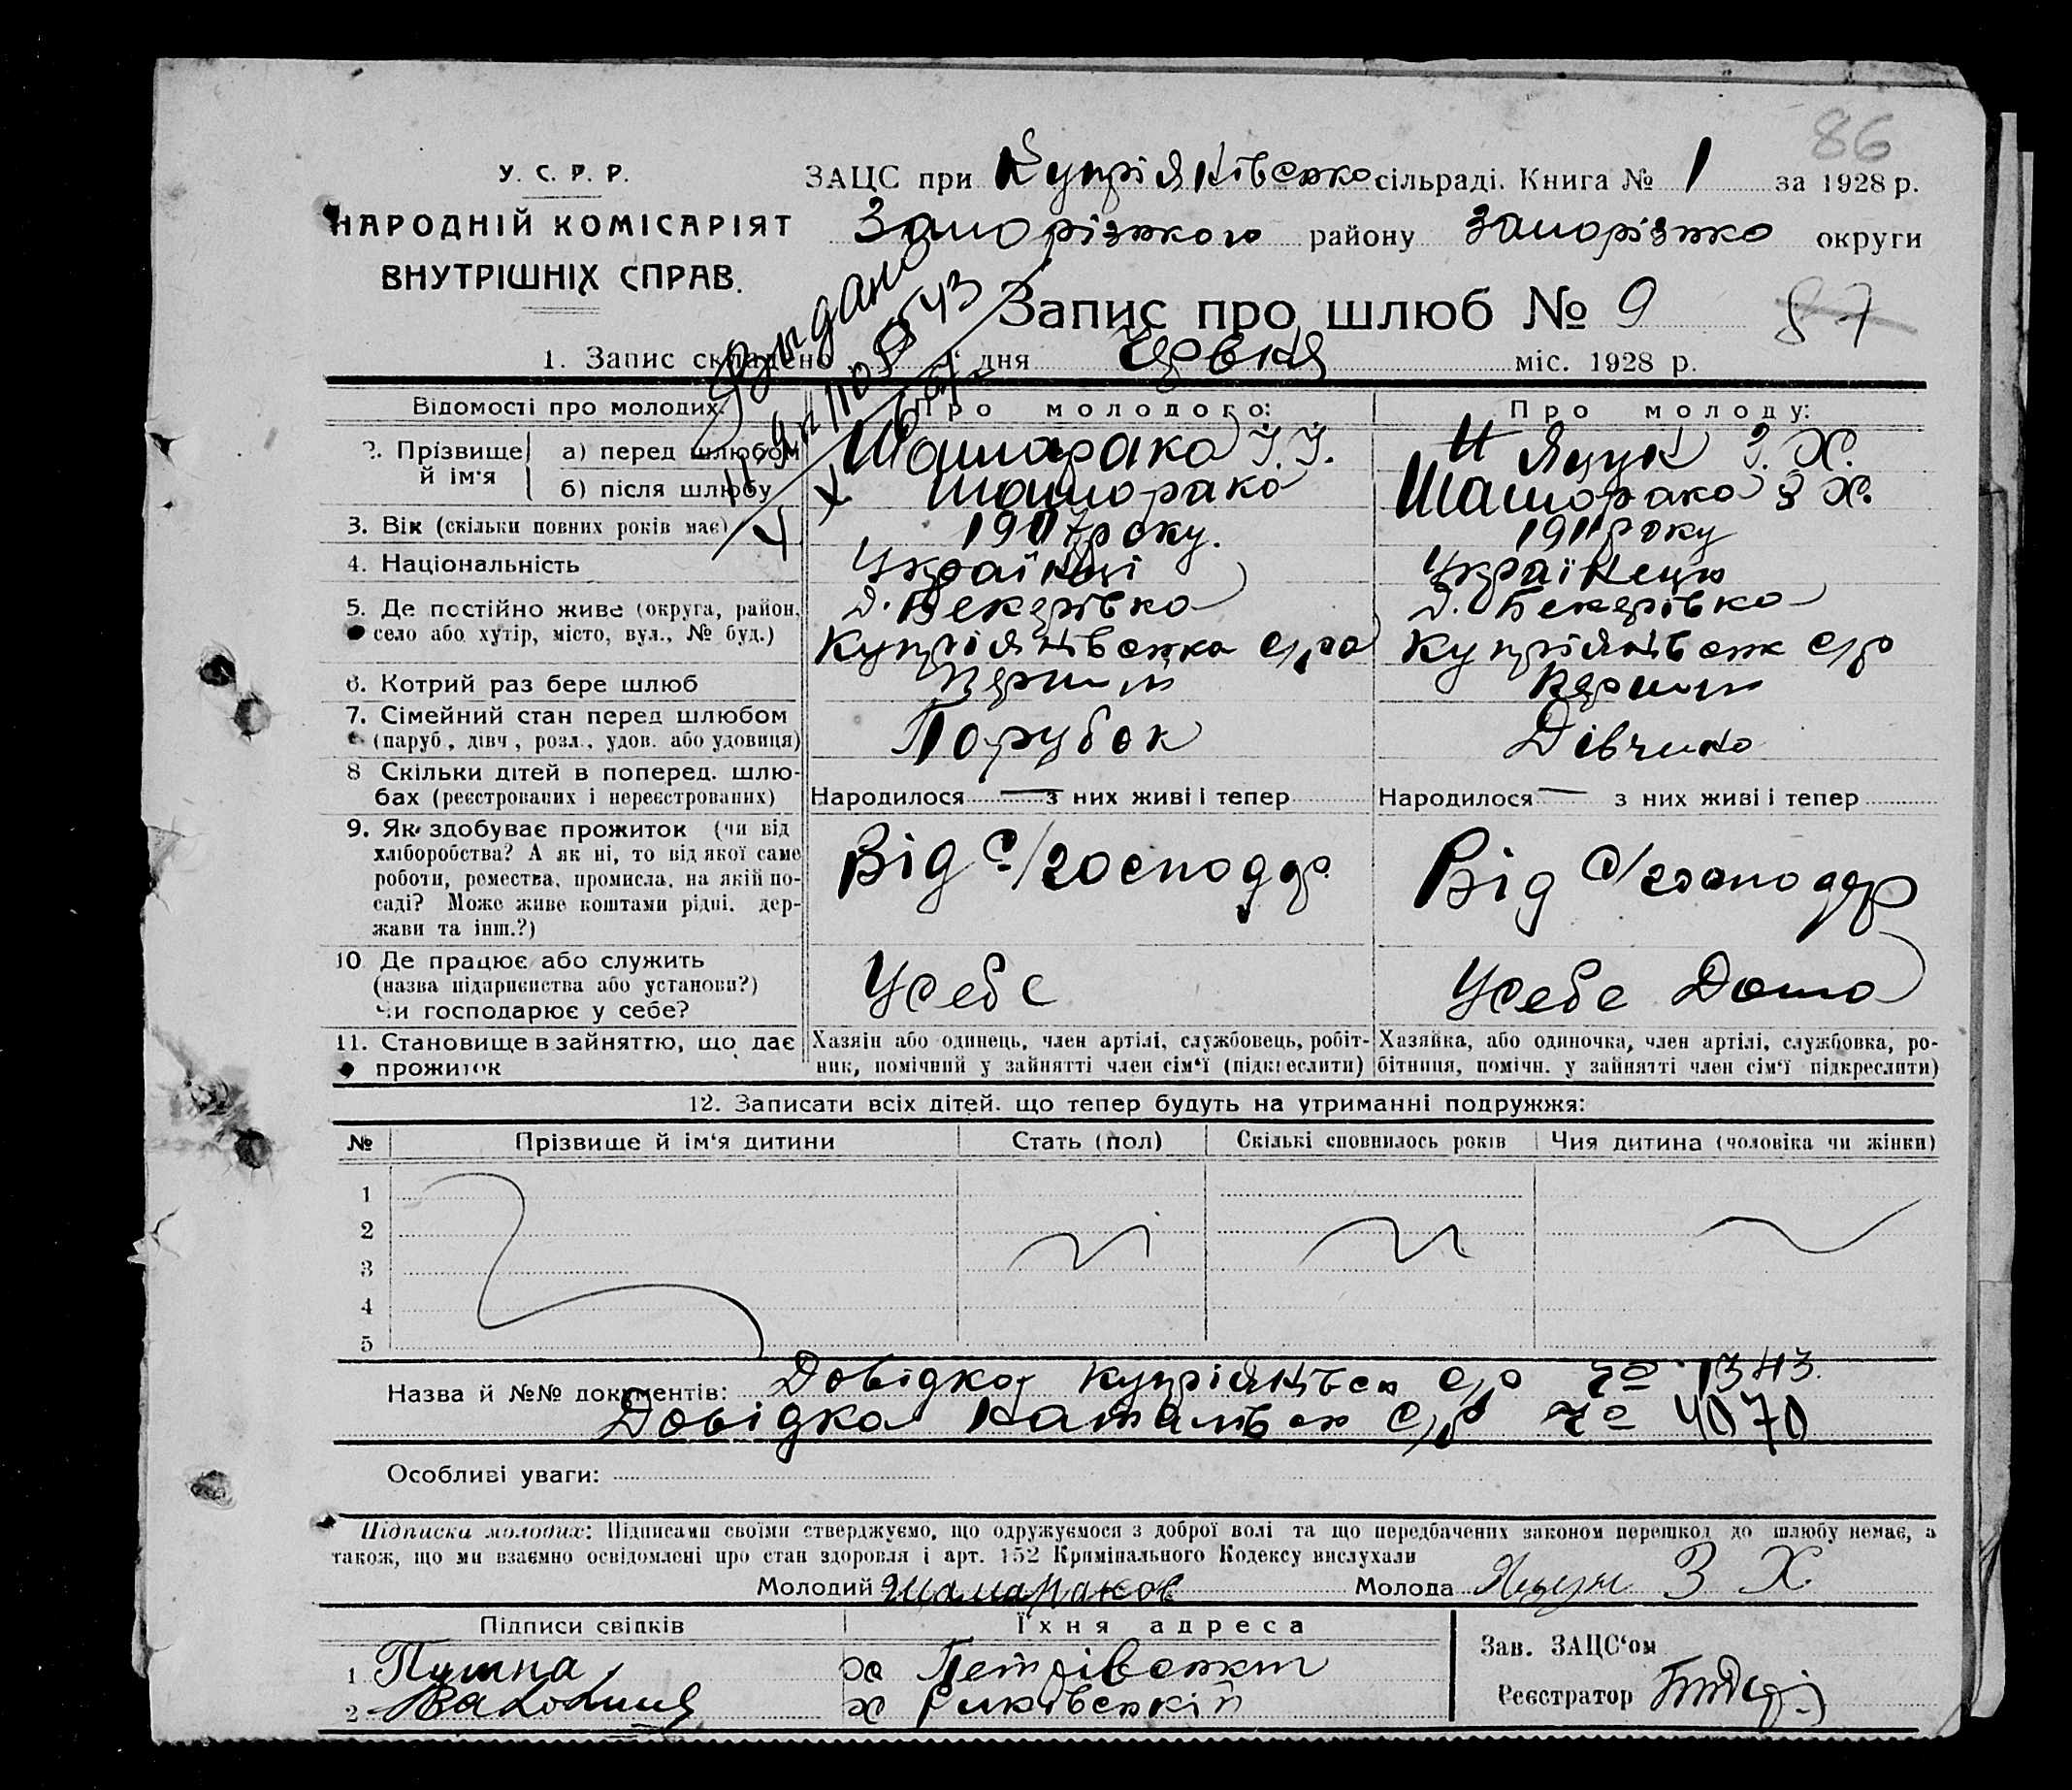 86
У. С. Р. Р.
НАРОДНІЙ КОМІСАРІЯТ
ВНУТРІШНІХ СПРАВ.
ЗАЦС при Купріянівсько сільраді. Книга № 1 за 1928 р.
Запорізького району Запорізко округи
Запис про шлюб № 9 87
Выдано
1. Запис складено дня Червня міс. 1928 р.
Відомості про молодих. Про молодого: Про молоду:
2. Прізвище й ім'я
а) перед шлюбом Шамарако І. І. Яцук З. Х.
б) після шлюбу Шаморако Шаморако З Х.
3. Вік (скільки повних років має) 1907 року. 1911 року
4. Національність Українці Українець
5. Де постійно живе (округа, район, д. Бекерівка д. Бекерівка
село або хутір, місто, вул., № буд.) Купріянівська с/ра Купріянівськ с/р
6. Котрий раз бере шлюб Перший Перший
7. Сімейний стан перед шлюбом Порубок Дівчино
(паруб., дівч., розл., удов. або удовиця)
8 Скільки дітей в поперед. шлю-
бах (реєстрованих і нереєстрованих) Народилося — з них живі і тепер Народилося — з них живі і тепер
9. Як здобуває прожиток (чи від
хліборобства? А як ні, то від якої саме Від с/господар. Від с/господар
роботи, ремества, промисла, на якій по-
саді? Може живе коштами рідні, дер-
жави та інш.?)
10 Де працює або служить Усебе Усебе Дома
(назва підприємства або установи?)
чи господарює у себе?
11. Становище в зайняттю, що дає Хазяїн або одинець, член артілі, службовець, робіт- Хазяйка, або одиночка, член артілі, службовка, ро-
прожиток ник, помічний у зайнятті член сім'ї (підкреслити) бітниця, помічн. у зайнятті член сім'ї підкреслити)
12. Записати всіх дітей. що тепер будуть на утриманні подружжя:
№ Прізвище й ім'я дитини Стать (пол) Скількі сповнилось років Чия дитина (чоловіка чи жінки)
1
2
3
4
5
Назва й №№ документів: Довідка Купріянівськ с/р за 1343.
Довідка Натальвськ с/р за 4070
Особливі уваги:
Підписка молодих: Підписами своїми стверджуємо, що одружуємося з доброї волі та що передбачених законом перешкод до шлюбу немає, а
також, що ми взаємно освідомлені про стан здоровля і арт. 152 Кримінального Кодексу вислухали
Молодий Шамараков Молода Яцук З Х.
Підписи свідків Їхня адреса
Зав. ЗАЦС'ом
1 Пушна х Петрівський
Реєстратор
2 х